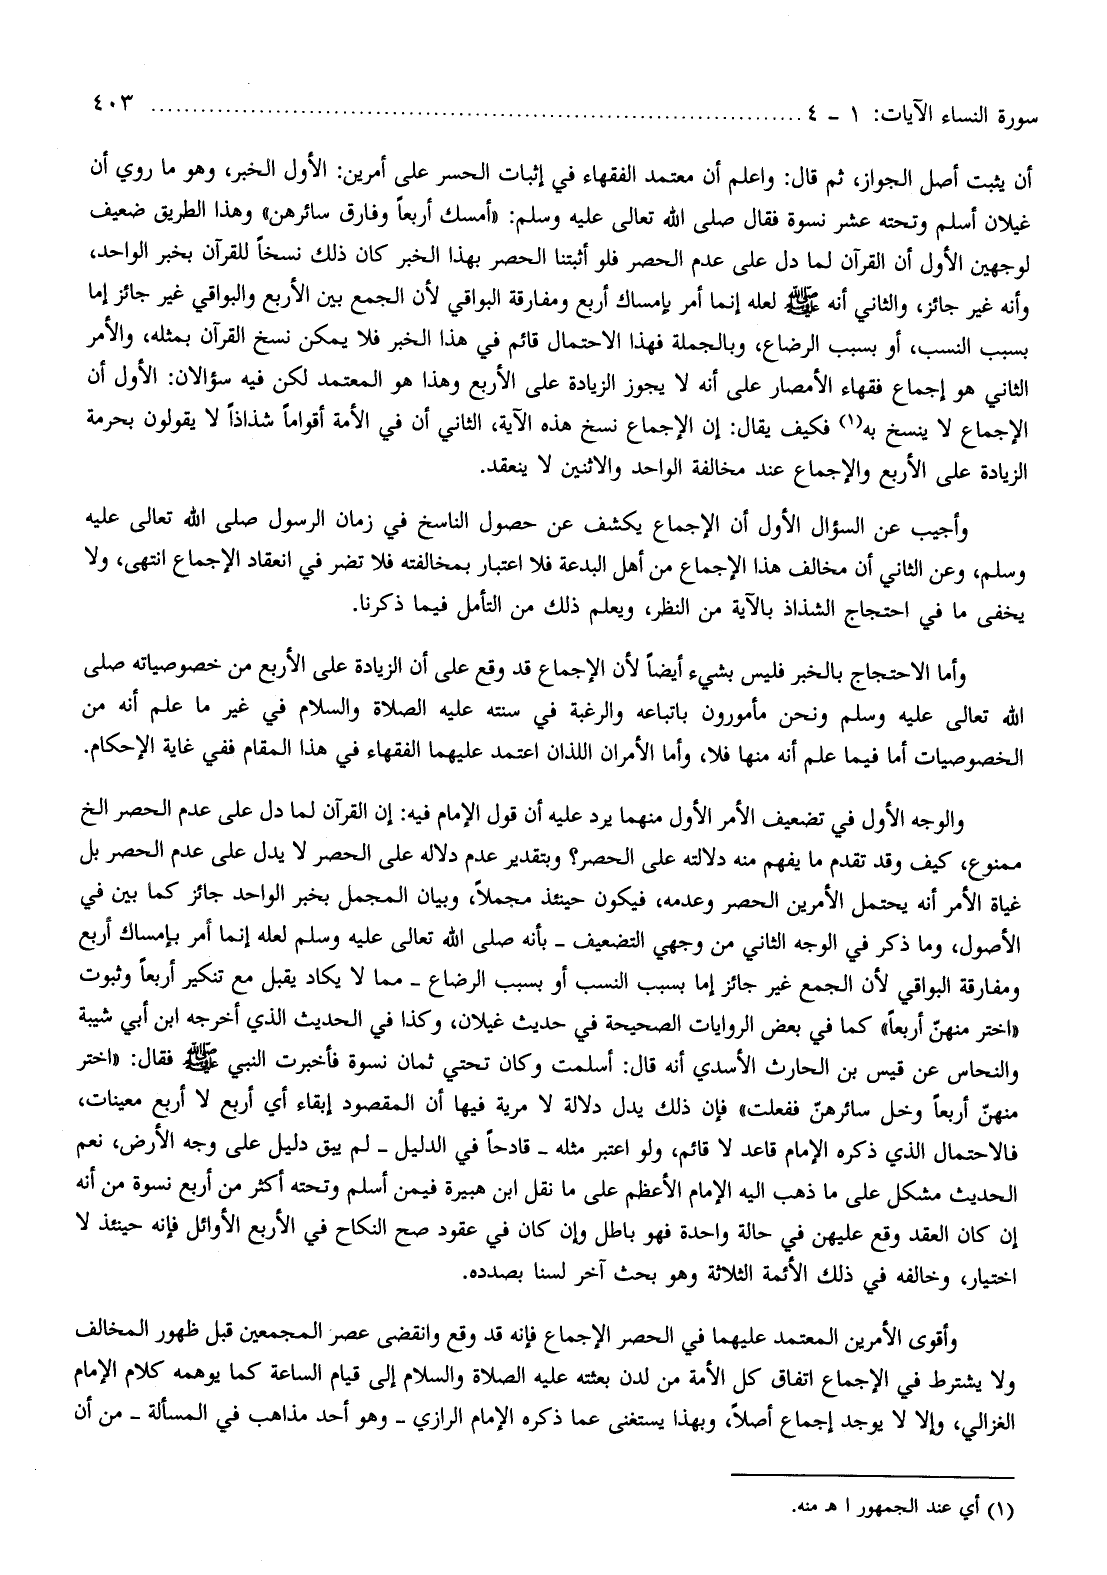 سورة النساء الآيات: ١ - ٤ ........................................ ٤٠٣
أن يثبت أصل الجواز، ثم قال: واعلم أن معتمد الفقهاء في إثبات الحسر على أمرين: الأول الخبر، وهو ما روي أن
غيلان أسلم وتحته عشر نسوة فقال صلى الله تعالى عليه وسلم: «أمسك أربعاً وفارق سائرهن» وهذا الطريق ضعيف
لوجهين الأول أن القرآن لما دل على عدم الحصر فلو أثبتنا الحصر بهذا الخبر كان ذلك نسخاً للقرآن بخبر الواحد،
وأنه غير جائز، والثاني أنه ﷺ لعله إنما أمر بإمساك أربع ومفارقة البواقي لأن الجمع بين الأربع والبواقي غير جائز إما
بسبب النسب، أو بسبب الرضاع، وبالجملة فهذا الاحتمال قائم في هذا الخبر فلا يمكن نسخ القرآن بمثله، والأمر
الثاني هو إجماع فقهاء الأمصار على أنه لا يجوز الزيادة على الأربع وهذا هو المعتمد لكن فيه سؤالان: الأول أن
الإجماع لا ينسخ به(١) فكيف يقال: إن الإجماع نسخ هذه الآية، الثاني أن في الأمة أقواماً شذاذاً لا يقولون بحرمة
الزيادة على الأربع والإجماع عند مخالفة الواحد والاثنين لا ينعقد.
وأجيب عن السؤال الأول أن الإجماع يكشف عن حصول الناسخ في زمان الرسول صلى الله تعالى عليه
وسلم، وعن الثاني أن مخالف هذا الإجماع من أهل البدعة فلا اعتبار بمخالفته فلا تضر في انعقاد الإجماع انتهى، ولا
يخفى ما في احتجاج الشذاذ بالآية من النظر، ويعلم ذلك من التأمل فيما ذكرنا.
وأما الاحتجاج بالخبر فليس بشيء أيضاً لأن الإجماع قد وقع على أن الزيادة على الأربع من خصوصياته صلى
الله تعالى عليه وسلم ونحن مأمورون باتباعه والرغبة في سنته عليه الصلاة والسلام في غير ما علم أنه من
الخصوصيات أما فيما علم أنه منها فلا، وأما الأمران اللذان اعتمد عليهما الفقهاء في هذا المقام ففي غاية الإحكام.
والوجه الأول في تضعيف الأمر الأول منهما يرد عليه أن قول الإمام فيه: إن القرآن لما دل على عدم الحصر الخ
ممنوع، كيف وقد تقدم ما يفهم منه دلالته على الحصر؟ وبتقدير عدم دلاله على الحصر لا يدل على عدم الحصر بل
غياة الأمر أنه يحتمل الأمرين الحصر وعدمه، فيكون حينئذ مجملاً، وبيان المجمل بخبر الواحد جائز كما بين في
الأصول، وما ذكر في الوجه الثاني من وجهي التضعيف - بأنه صلى الله تعالى عليه وسلم لعله إنما أمر بإمساك أربع
ومفارقة البواقي لأن الجمع غير جائز إما بسبب النسب أو بسبب الرضاع - مما لا يكاد يقبل مع تنكير أربعاً وثبوت
«اختر منهنّ أربعاً» كما في بعض الروايات الصحيحة في حديث غيلان، وكذا في الحديث الذي أخرجه ابن أبي شيبة
والنحاس عن قيس بن الحارث الأسدي أنه قال: أسلمت وكان تحتي ثمان نسوة فأخبرت النبي ﷺ فقال: «اختر
منهنّ أربعاً وخل سائرهنّ ففعلت» فإن ذلك يدل دلالة لا مرية فيها أن المقصود إبقاء أي أربع لا أربع معينات،
فالاحتمال الذي ذكره الإمام قاعد لا قائم، ولو اعتبر مثله - قادحاً في الدليل - لم يبق دليل على وجه الأرض، نعم
الحديث مشكل على ما ذهب اليه الإمام الأعظم على ما نقل ابن هبيرة فيمن أسلم وتحته أكثر من أربع نسوة من أنه
إن كان العقد وقع عليهن في حالة واحدة فهو باطل وإن كان في عقود صح النكاح في الأربع الأوائل فإنه حينئذ لا
اختيار، وخالفه في ذلك الأئمة الثلاثة وهو بحث آخر لسنا بصدده.
وأقوى الأمرين المعتمد عليهما في الحصر الإجماع فإنه قد وقع وانقضى عصر المجمعين قبل ظهور المخالف
ولا يشترط في الإجماع اتفاق كل الأمة من لدن بعثته عليه الصلاة والسلام إلى قيام الساعة كما يوهمه كلام الإمام
الغزالي، وإلا لا يوجد إجماع أصلاً، وبهذا يستغنى عما ذكره الإمام الرازي - وهو أحد مذاهب في المسألة - من أن
(١) أي عند الجمهور ا هـ منه.